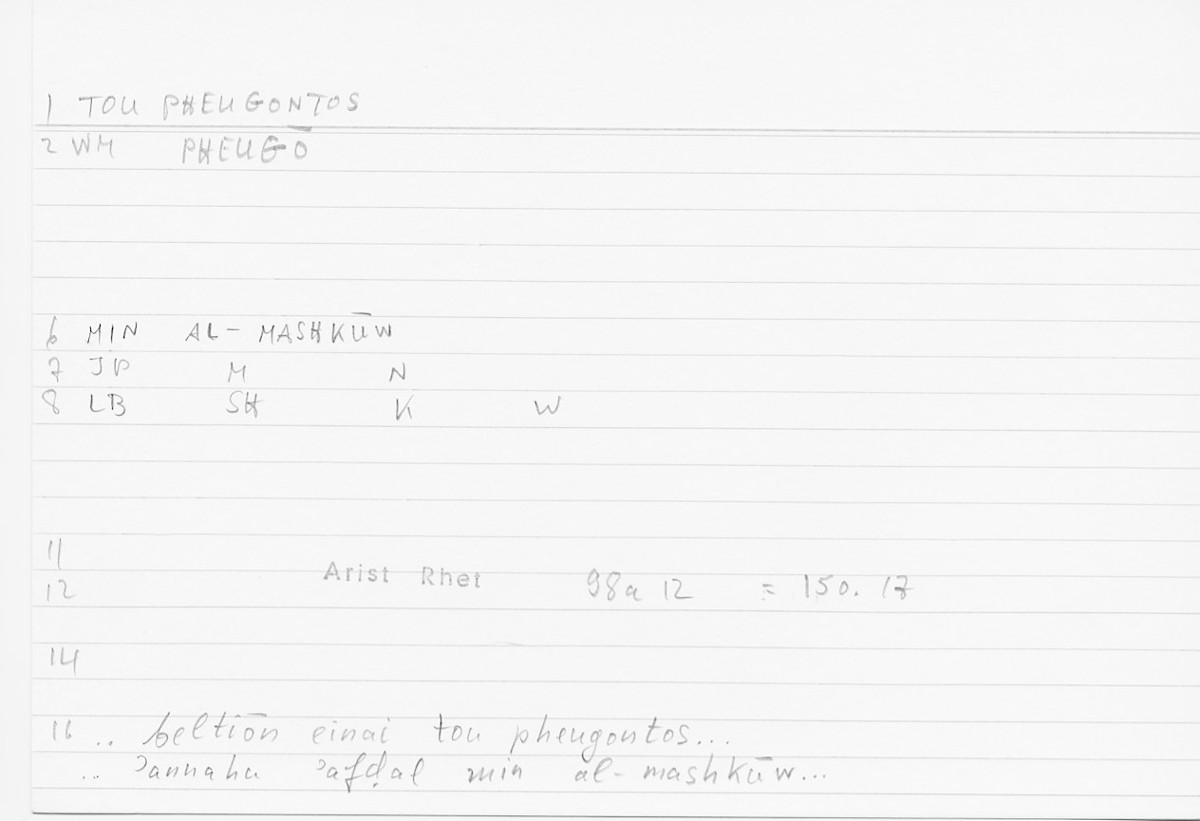 1 TOU PHEUGONTOS
2 WM PHEUGŌ
6 MIN AL-MASHKŪW
7 JP M N
8 LB SH K W
11
12 Arist Rhet 98a 12 = 150.17
14
16 .. beltiōn einai tou pheugontos...
.. ʾannahu ʾafḍal min al-mashkūw...